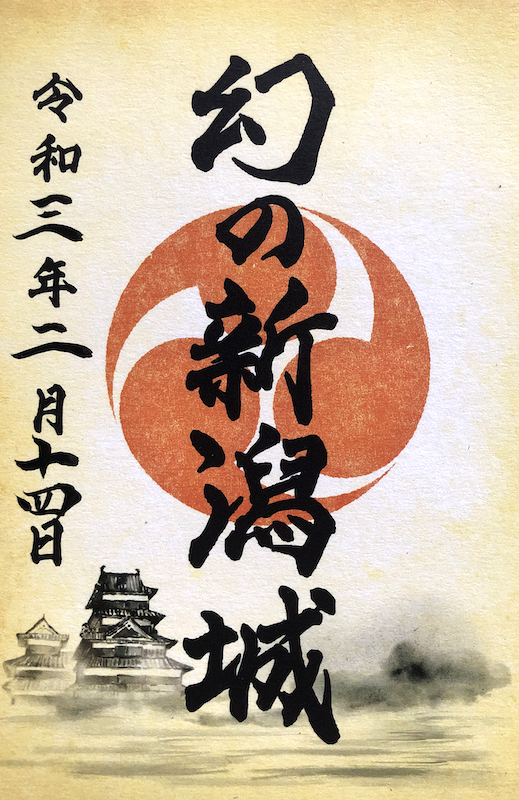 幻の新潟城
令和三年二月十四日